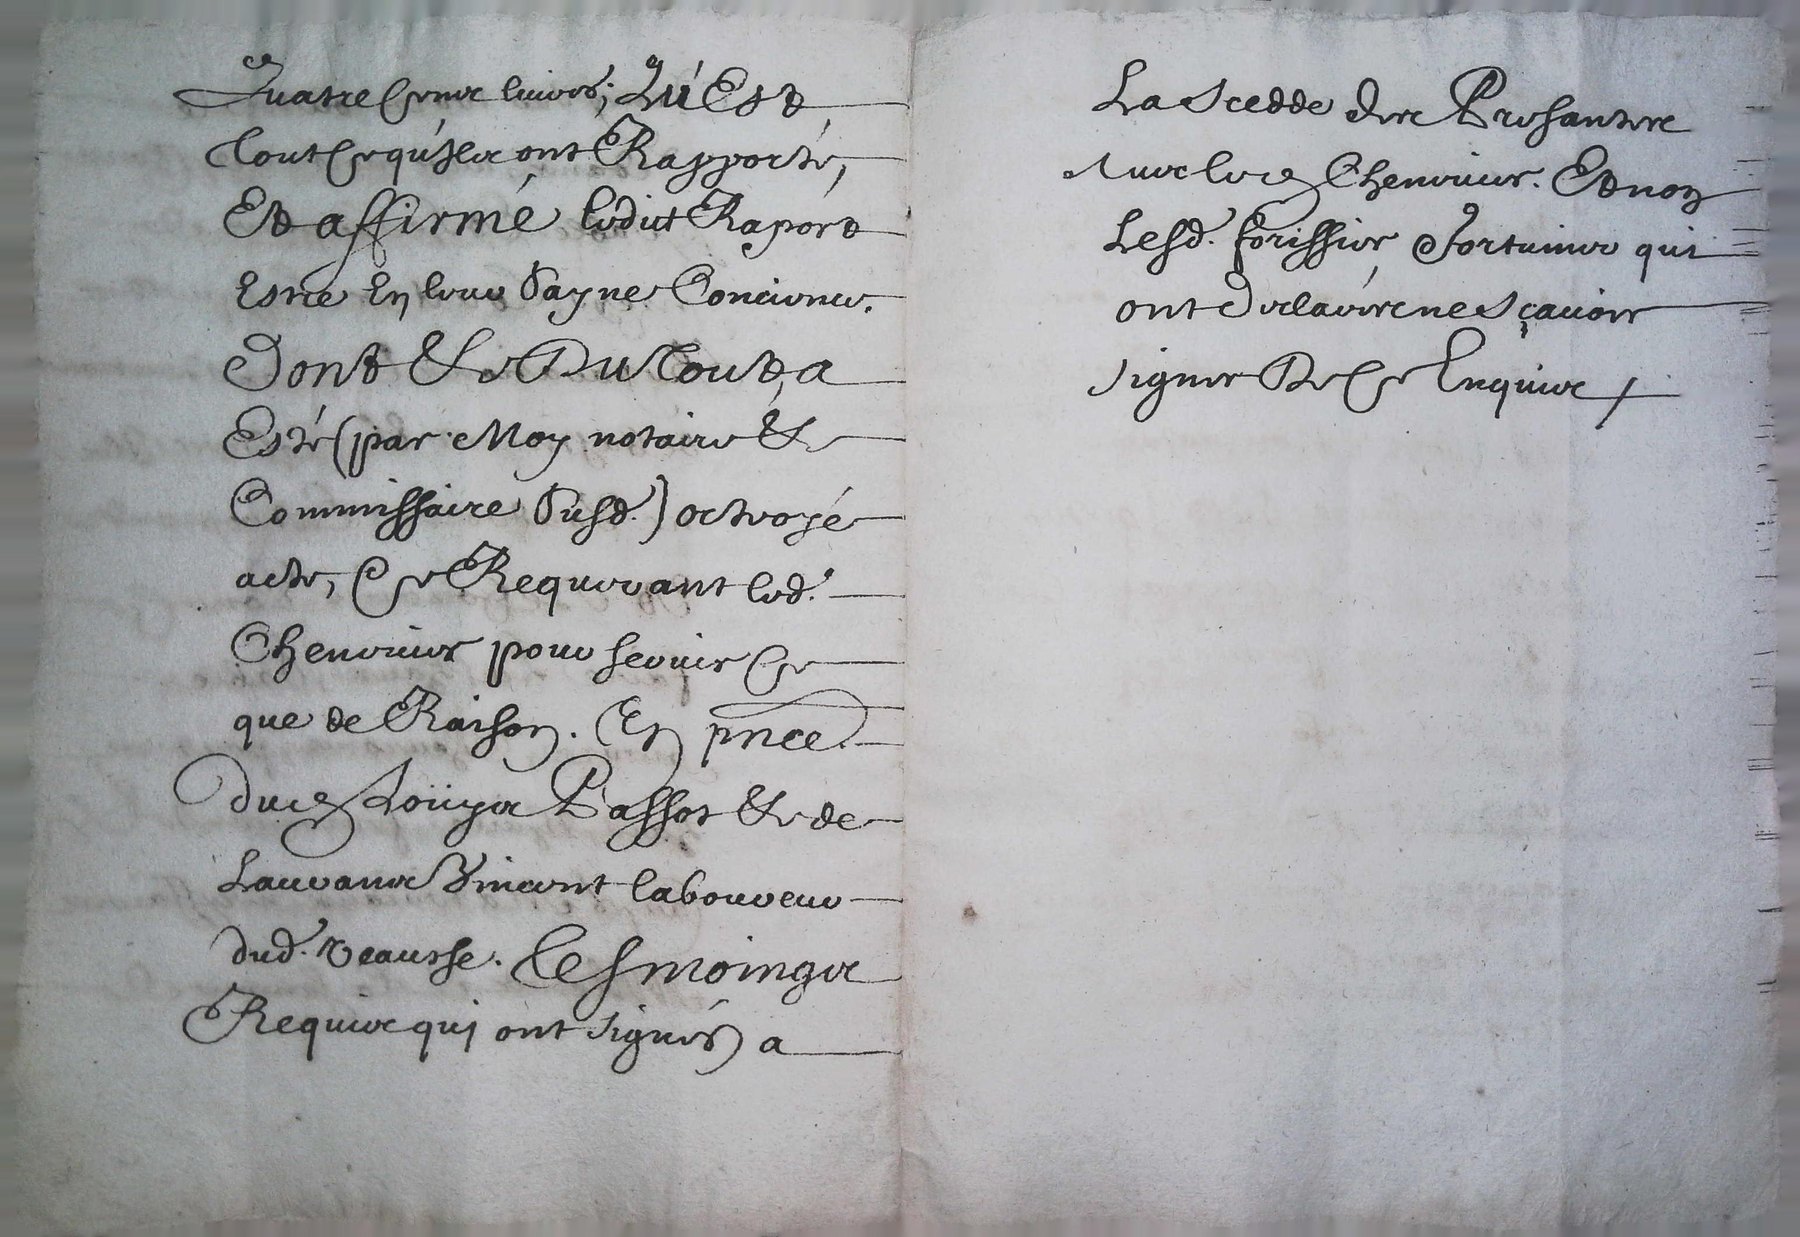 Quatre Cent livres; Qu'Est
tout Ce qu'Ils ont Rapporté,
Et affirmé ledict Raport
Estre En leur Sayne Concience.
Dont & Du tout, a
Esté (par Moy notaire &
Commissaire Susd.) octroyé
acte, Ce Requerant led.
Chenevier pour servir Ce
que de Raison. En pnce.
de Passot & de
Vincent laboureur
dud. Tesmoings
Requis qui ont signés a
La Scedde des Presantes
Avec led Chenevier. Et non
Lesd. qui
ont declairé ne Sçavoir
signer De Ce Enquis